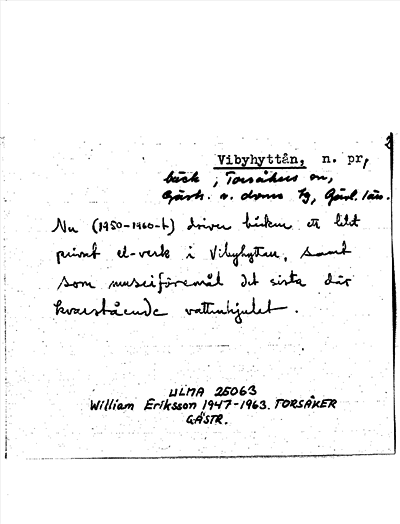 Vibyhyttån, n. pr,
bäck i Torsåkers sn,
Gästr. ö. doms tg, Gävl. län.
Nu (1950-1960-t) driver bäcken ett litet
privat el-verk i Vibyhyttan, samt
som museiföremål det sista där
kvarstående vattenhjulet.
ULMA 25063
William Eriksson 1947-1963. TORSÅKER
GÄSTR.